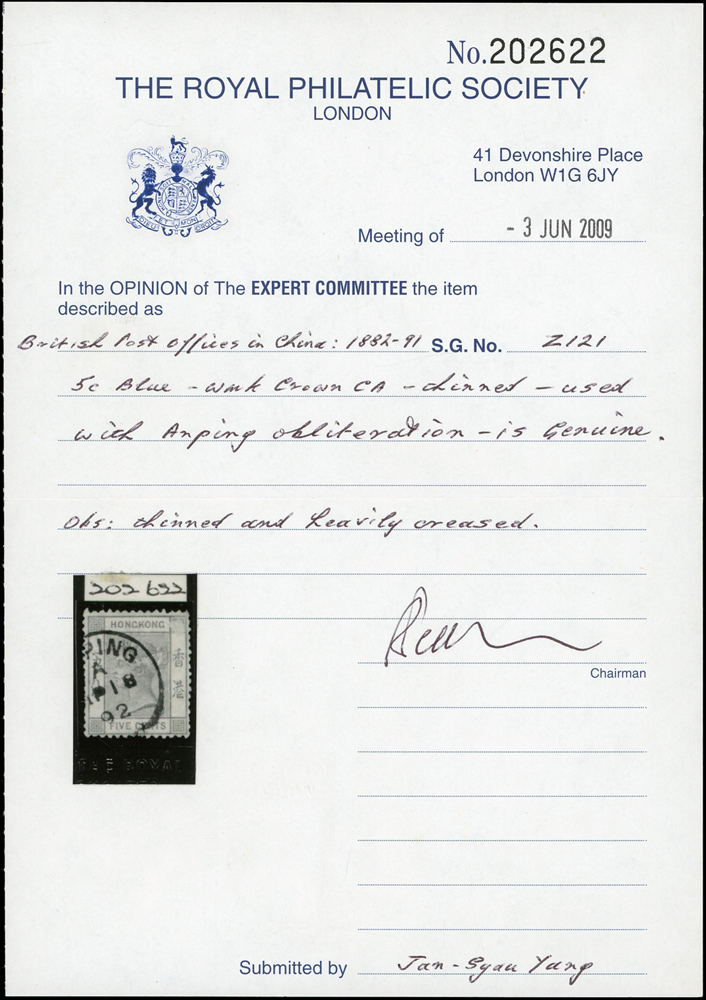 No.202622
THE ROYAL PHILATELIC SOCIETY
LONDON
41 Devonshire Place
London W1G 6JY
Meeting of - 3 JUN 2009
In the OPINION of The EXPERT COMMITTEE the item
described as
British Post Offices in China: 1882-91 S.G. No. Z121
5c Blue - wmk Crown CA - thinned - used
with Anping obliteration - is Genuine.
Obs: thinned and heavily creased.
202 622
HONGKONG
PING
A
AP 18
92
香港
FIVE CENTS
THE ROYAL
Chairman
Submitted by Jan-Syau Yang